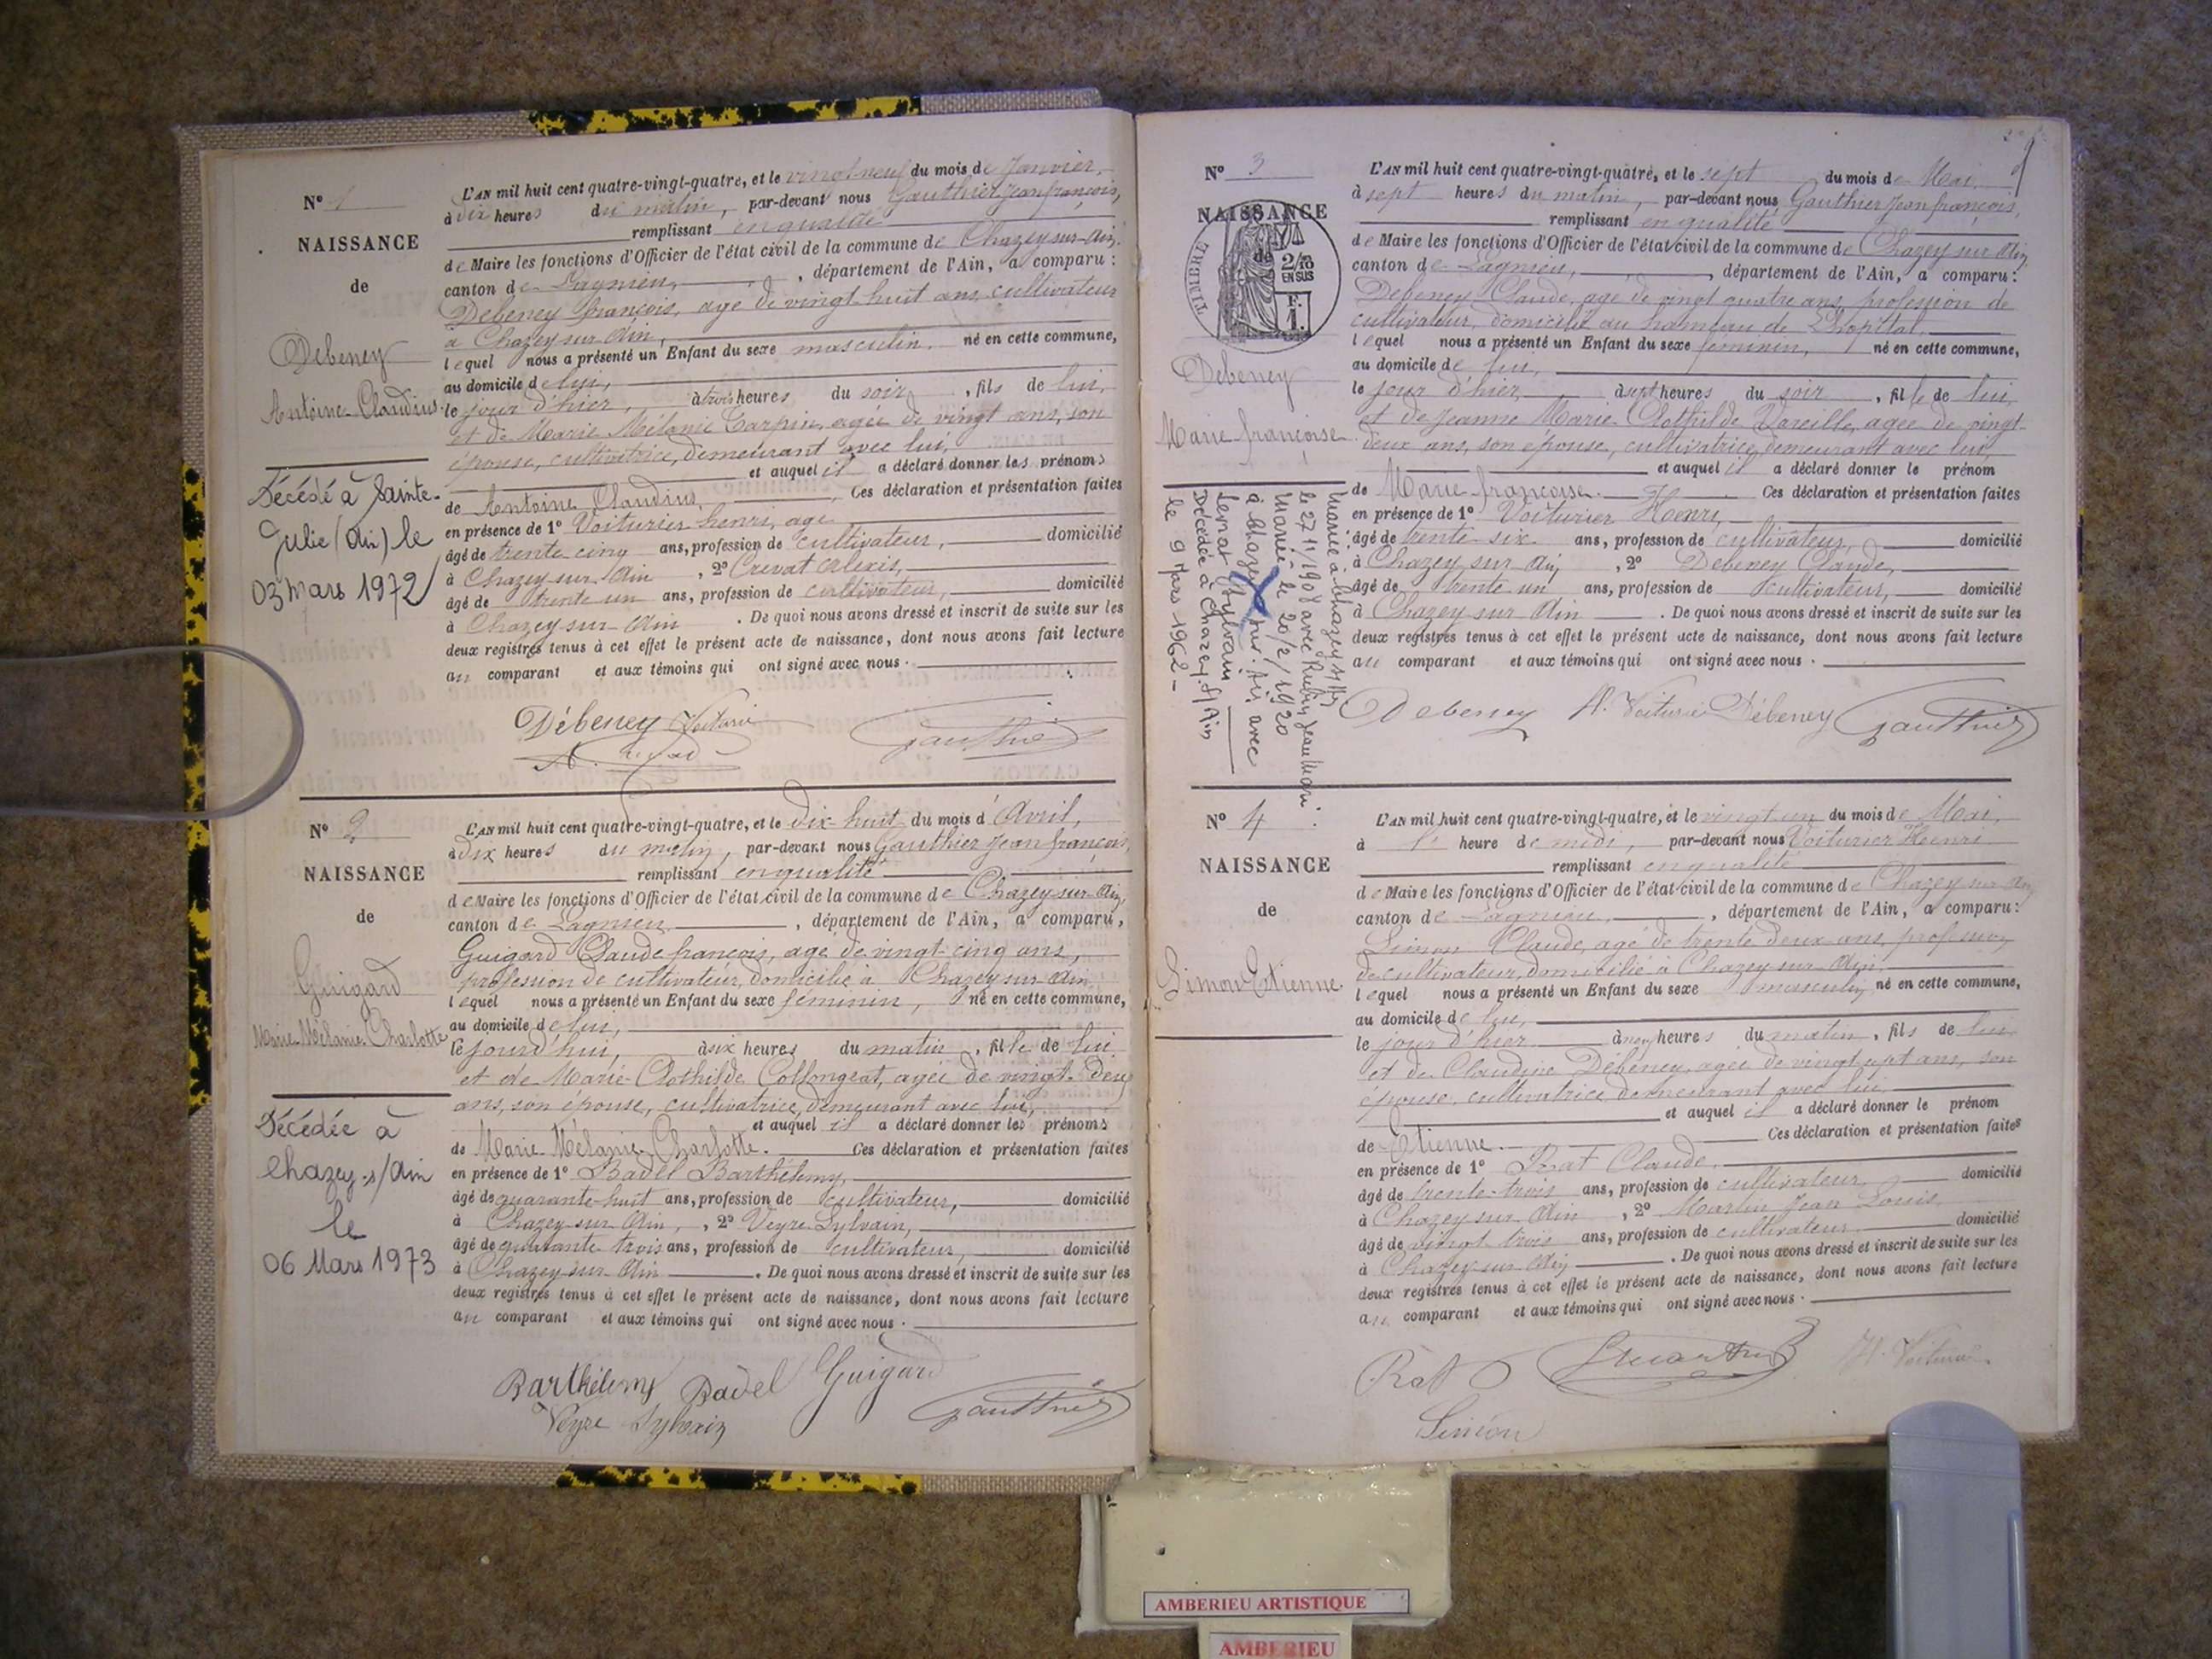 N° 1
NAISSANCE
de
Debeney
Antoine Claudius
Décédé à Sainte-
Julie (Ain) le
03 Mars 1972
L'AN mil huit cent quatre-vingt-quatre, et le vingt-neuf du mois de Janvier,
à dix heures du matin, par-devant nous Gauthier Jean françois,
remplissant en qualité
de Maire les fonctions d'Officier de l'état civil de la commune de Chazey-sur-Ain,
canton de Lagnieu, département de l'Ain, a comparu :
Debeney françois, agé de vingt huit ans, cultivateur
à Chazey sur Ain,
lequel nous a présenté un Enfant du sexe masculin, né en cette commune,
au domicile de lui,
le jour d'hier, à trois heures du soir, fils de lui,
et de Marie Mélanie Carpin, agée de vingt ans, son
épouse, cultivatrice, demeurant avec lui,
et auquel il a déclaré donner les prénoms
de Antoine Claudius, Ces déclaration et présentation faites
en présence de 1° Voiturier henri, agé
âgé de trente cinq ans, profession de cultivateur, domicilié
à Chazey sur Ain, 2° Crevat Alexis,
âgé de trente un ans, profession de cultivateur, domicilié
à Chazey-sur-Ain. De quoi nous avons dressé et inscrit de suite sur les
deux registres tenus à cet effet le présent acte de naissance, dont nous avons fait lecture
au comparant et aux témoins qui ont signé avec nous.
Débeney Voiturier
Gauthier
N° 2
NAISSANCE
de
Guigard
Marie Mélanie Charlotte
Décédée à
Chazey-s/Ain
le
06 Mars 1973
L'AN mil huit cent quatre-vingt-quatre, et le dix huit du mois d'Avril,
à dix heures du matin, par-devant nous Gauthier Jean françois,
remplissant en qualité
de Maire les fonctions d'Officier de l'état civil de la commune de Chazey-sur-Ain,
canton de Lagnieu, département de l'Ain, a comparu,
Guigard Claude françois, age de vingt-cinq ans,
profession de cultivateur, domicilié à Chazey sur Ain
lequel nous a présenté un Enfant du sexe féminin, né en cette commune,
au domicile de lui,
le jourd'hui, à six heures du matin, fille de lui
et de Marie Clothilde Collongeat, agée de vingt-deux
ans, son épouse, cultivatrice, demeurant avec lui,
et auquel il a déclaré donner les prénoms
de Marie Mélanie Charlotte. Ces déclaration et présentation faites
en présence de 1° Badel Barthélemy,
âgé de quarante-huit ans, profession de cultivateur, domicilié
à Chazey sur Ain, 2° Veyre Sylvain,
âgé de quarante trois ans, profession de cultivateur, domicilié
à Chazey-sur-Ain. De quoi nous avons dressé et inscrit de suite sur les
deux registres tenus à cet effet le présent acte de naissance, dont nous avons fait lecture
au comparant et aux témoins qui ont signé avec nous.
Barthélemy Badel Guigard
Veyre Sylvain Gauthier
N° 3
NAISSANCE
de
TIMBRE
2/10
EN SUS
F.
1.
Debeney
Marie françoise
Mariée à Chazey s/Ain
le 27/11/1908 avec Rubin Jean Marie
Mariée le 20/2/1920
à Chazey sur Ain avec
Sylvain
Décédée à Chazey-s/Ain
le 9 Mars 1962-
L'AN mil huit cent quatre-vingt-quatre, et le sept du mois de Mai,
à sept heures du matin, par-devant nous Gauthier Jean françois,
remplissant en qualité
de Maire les fonctions d'Officier de l'état civil de la commune de Chazey sur Ain,
canton de Lagnieu, département de l'Ain, a comparu :
Debeney Claude, agé de vingt quatre ans, profession de
cultivateur, domicilié au hameau de Lhopital
lequel nous a présenté un Enfant du sexe féminin, né en cette commune,
au domicile de lui,
le jour d'hier, à sept heures du soir, fille de lui,
et de Jeanne Marie Clothilde Vareille, agée de vingt-
deux ans, son epouse, cultivatrice, demeurant avec lui,
et auquel il a déclaré donner le prénom
de Marie françoise. Ces déclaration et présentation faites
en présence de 1° Voiturier Henri,
âgé de trente six ans, profession de cultivateur, domicilié
à Chazey sur Ain, 2° Debeney Claude,
âgé de trente un ans, profession de cultivateur, domicilié
à Chazey sur Ain. De quoi nous avons dressé et inscrit de suite sur les
deux registres tenus à cet effet le présent acte de naissance, dont nous avons fait lecture
au comparant et aux témoins qui ont signé avec nous.
Debeney H. Voiturier Débeney Gauthier
N° 4
NAISSANCE
de
Simon Etienne
L'AN mil huit cent quatre-vingt-quatre, et le vingt un du mois de Mai,
à heure de midi, par-devant nous Voiturier Henri
remplissant en qualité
de Maire les fonctions d'Officier de l'état civil de la commune de Chazey sur Ain,
canton de Lagnieu, département de l'Ain, a comparu :
Simon Claude, agé de trente deux ans, profession
de cultivateur, domicilié à Chazey sur Ain,
lequel nous a présenté un Enfant du sexe masculin, né en cette commune,
au domicile de lui,
le jour d'hier à neuf heures du matin, fils de lui
et de Claudine Débeney, agée de vingt sept ans, son
épouse, cultivatrice demeurant avec lui,
et auquel il a déclaré donner le prénom
de Etienne. Ces déclaration et présentation faites
en présence de 1° Prat Claude,
âgé de trente-trois ans, profession de cultivateur, domicilié
à Chazey sur Ain, 2° Martin Jean Louis,
âgé de vingt trois ans, profession de cultivateur, domicilié
à Chazey sur Ain. De quoi nous avons dressé et inscrit de suite sur les
deux registres tenus à cet effet le présent acte de naissance, dont nous avons fait lecture
au comparant et aux témoins qui ont signé avec nous.
H. Voiturier
Siméon
AMBERIEU ARTISTIQUE
AMBERIEU